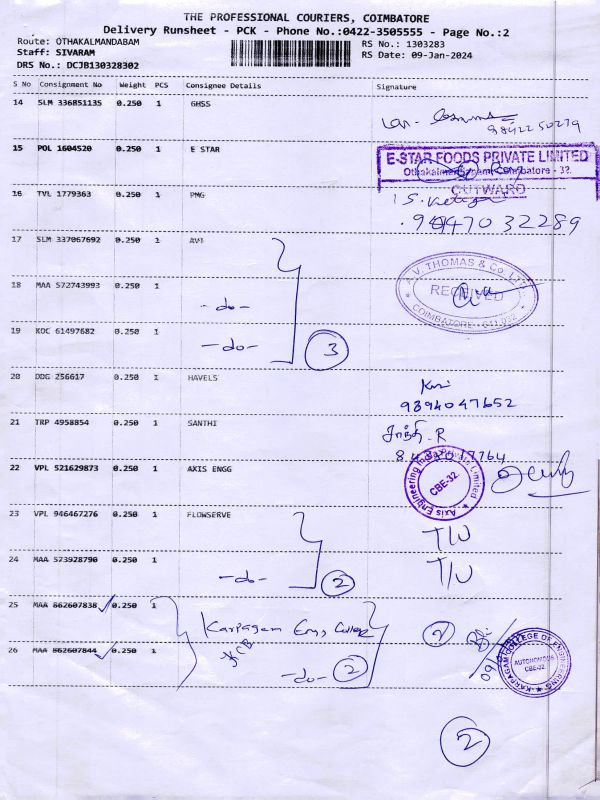 THE PROFESSIONAL COURIERS, COIMBATORE
Delivery Runsheet - PCK - Phone No.:0422-3505555 - Page No.:2
Route: OTHAKALMANDABAM
RS No.: 1303283
Staff: SIVARAM
RS Date: 09-Jan-2024
DRS No.: DCJB130328302
S No Consignment No Weight PCS Consignee Details Signature
14 SLM 336851135 0.250 1 GHSS
9842250279
15 POL 1604520 0.250 1 E STAR
E-STAR FOODS PRIVATE LIMITED
Coimbatore - 32.
OUTWARD
16 TVL 1779363 0.250 1 PMG
17 SLM 337067692 0.250 1 AVT
A.V. THOMAS & Co. Ltd
RECEIVED
COIMBATORE - 641 032
18 MAA 572743993 0.250 1 -do-
19 KOC 61497682 0.250 1 -do- 3
20 DDG 256617 0.250 1 HAVELS
9394047652
21 TRP 4958854 0.250 1 SANTHI
சாந்தி . R
22 VPL 521629873 0.250 1 AXIS ENGG
Axis Engineering India Private Limited
CBE-32
23 VPL 946467276 0.250 1 FLOWSERVE T/U
24 MAA 573928796 0.250 1 -do- 2 T/U
25 MAA 862607838 0.250 1 Karpagam Eng, College 2
26 MAA 862607844 0.250 1 -do- 2
KARPAGAM COLLEGE OF ENGINEERING
AUTONOMOUS
CBE-32
2